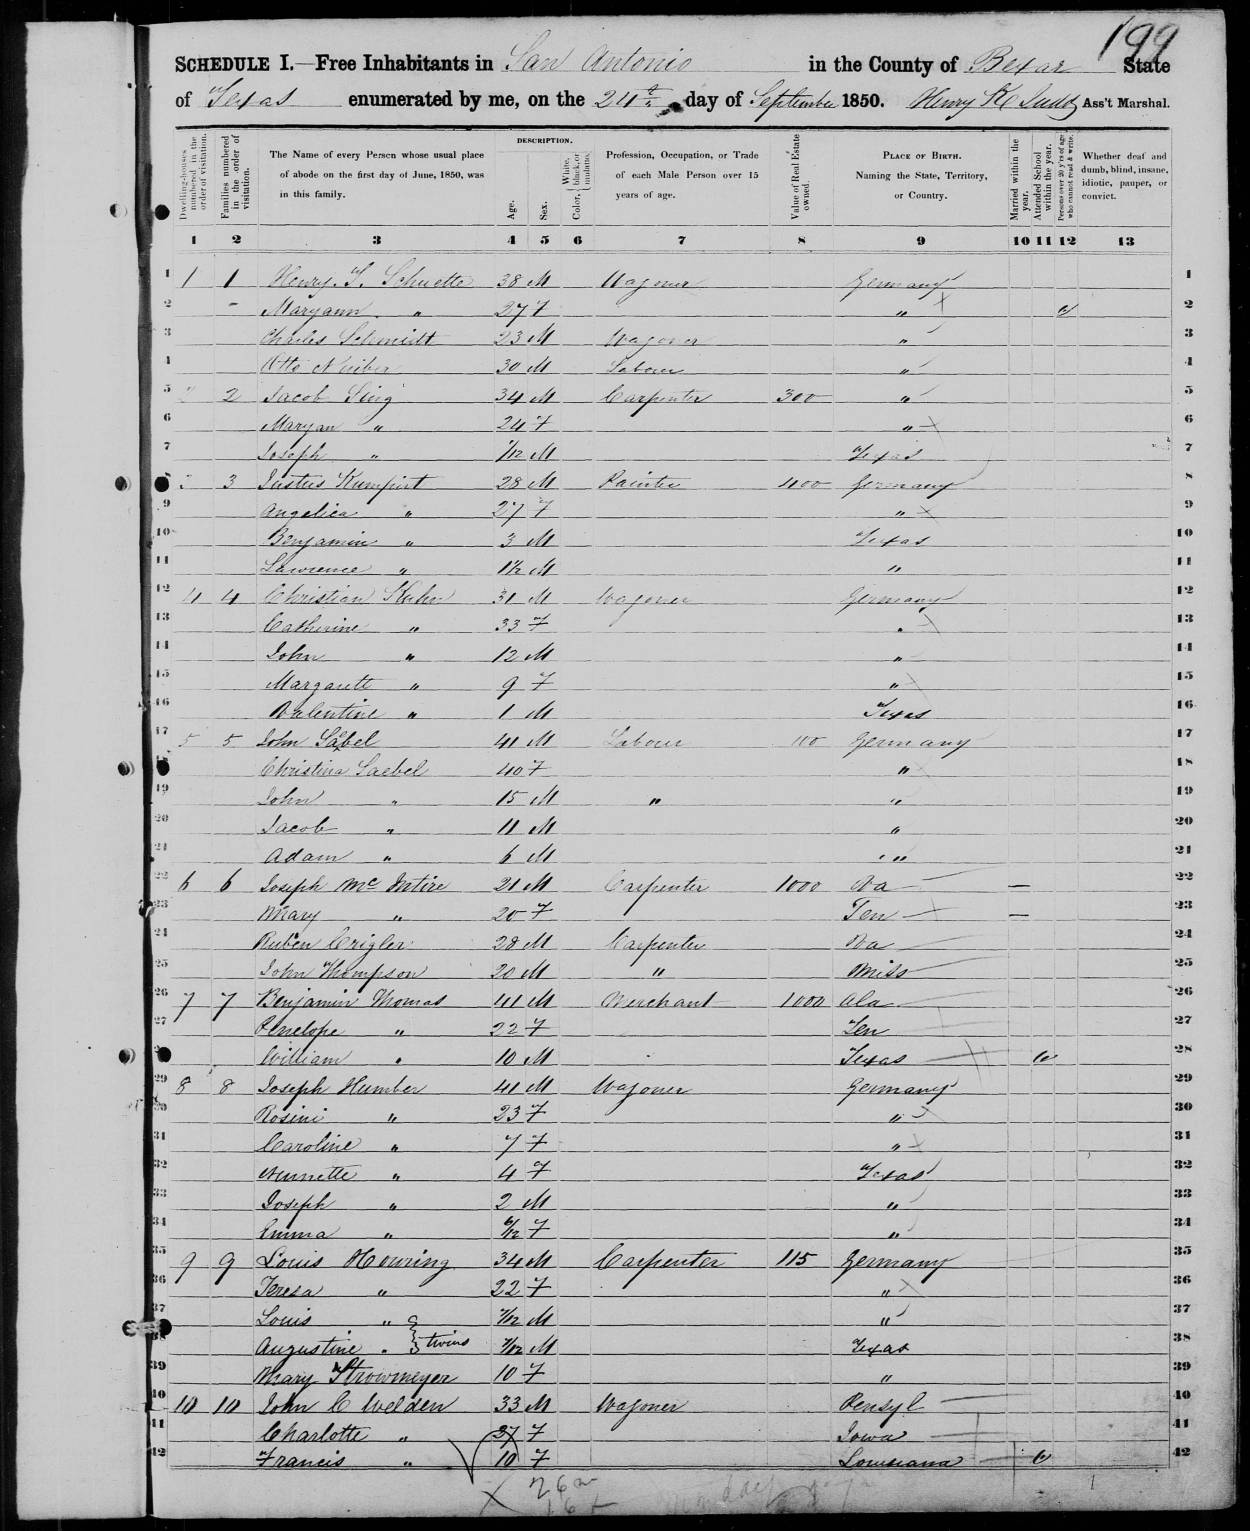 199
SCHEDULE I.—Free Inhabitants in San Antonio in the County of Bexar State
of Texas enumerated by me, on the 24th day of September 1850. Henry K Judd Ass't Marshal.
Dwelling-houses numbered in the order of visitation.
Families numbered in the order of visitation.
The Name of every Person whose usual place of abode on the first day of June, 1850, was in this family.
DESCRIPTION.
Age.
Sex.
Color, { White, black, or mulatto.
Profession, Occupation, or Trade of each Male Person over 15 years of age.
Value of Real Estate owned.
PLACE OF BIRTH. Naming the State, Territory, or Country.
Married within the year.
Attended School within the year.
Persons over 20 y'rs of age who cannot read & write.
Whether deaf and dumb, blind, insane, idiotic, pauper, or convict.
1 2 3 4 5 6 7 8 9 10 11 12 13
1 1 1 Henry. T. Schuette 38 M Wagoner Germany 1
2 " Maryann. " 27 F " 2
3 Charles Schmidt 23 M Wagoner " 3
4 Otto 30 M Labour " 4
5 2 2 Jacob Sing 34 M Carpenter 300 " 5
6 Maryan " 24 F " 6
7 Joseph " 1/12 M Texas 7
8 3 Justus Kumpirt 28 M Painter 400 Germany 8
9 Angelica " 27 F " 9
10 Benjamin " 3 M Texas 10
11 Lawrence " M " 11
12 4 4 Christian Kuhn 31 M Wagoner Germany 12
13 Catherine " 33 F " 13
14 John " 12 M " 14
15 Margarett " 9 F " 15
16 Valentine " 1 M Texas 16
17 5 5 John Sabel 41 M Labour 100 Germany 17
18 Christina Saebel 40 F " 18
19 John " 15 M " " 19
20 Jacob " 11 M " 20
21 Adam " 6 M " 21
22 6 6 Joseph Mc Intire 21 M Carpenter 1000 Va — 22
23 Mary " 20 F Ten — 23
24 Ruben Crigler 28 M Carpenter Va 24
25 John Thompson 20 M " Miss 25
26 7 7 Benjamin Thomas 41 M Merchant 1000 Ala 26
27 Penelope " 22 F Ten 27
28 William " 10 M Texas 28
29 8 8 Joseph Humber 41 M Wagoner Germany 29
30 Rosini " 23 F " 30
31 Caroline " 7 F " 31
32 Nunnette " 4 F Texas 32
33 Joseph " 2 M " 33
34 Emma " 6/12 F " 34
35 9 9 Louis Houring 34 M Carpenter 115 Germany 35
36 Teresa " 22 F " 36
37 Louis " 7/12 M " 37
38 Augustine " } twins 7/12 M Texas 38
39 Mary Strowmeyer 10 F " 39
40 10 10 John C Welden 33 M Wagoner Pensyl 40
41 Charlotte " 37 F Iowa 41
42 Francis " 10 F Louisiana 42